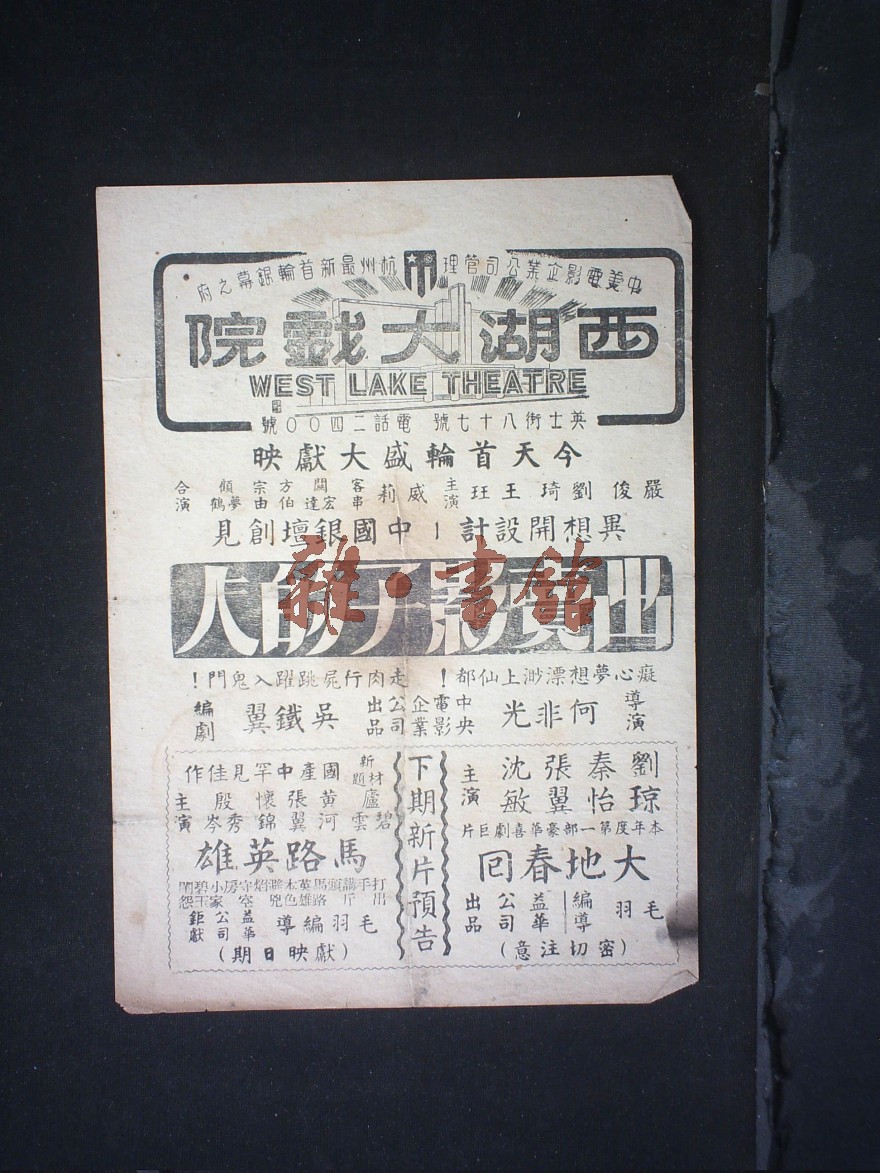 中美電影企業公司管理 杭州最新首輪銀幕之府
西湖大戲院
WEST LAKE THEATRE
英士街八十七號 電話二四〇〇號
今天首輪盛大獻映
嚴俊 劉琦 王玨 主演 威莉 客串 關宏達 方伯 宗由 顧夢鶴 合演
異想開設計—中國銀壇創見
出賣影子的人
癡心夢想漂渺上仙都!走肉行屍跳躍入鬼門!
導演 何非光 中央電影企業公司出品 吳鐵翼 編劇
劉琼 秦怡 張翼 沈敏 主演
本年度第一部豪華喜劇巨片
大地春回
毛羽 編導 益華公司出品
(密切注意)
下期新片預告
新題材 國產中罕見佳作
盧碧雲 黃河 張翼 懷錦 殷秀岑 主演
馬路英雄
打出手 講斤頭 馬路英雄
毛羽編導 益華公司鉅獻
(獻映日期)
雜·書館